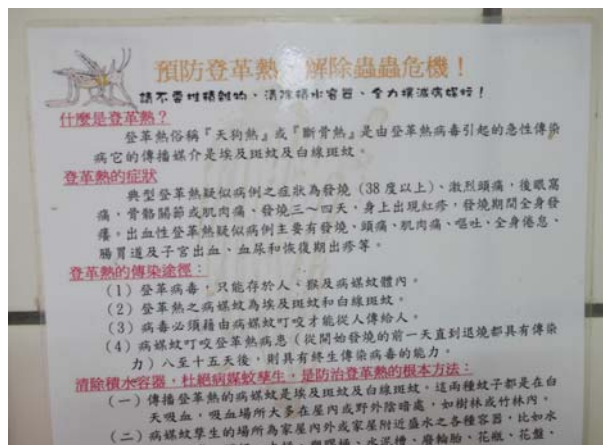 預防登革熱 解除蟲蟲危機！
請不要堆積雜物、清除積水容器、全力撲滅病媒蚊！
什麼是登革熱？
登革熱俗稱『天狗熱』或『斷骨熱』是由登革熱病毒引起的急性傳染
病它的傳播媒介是埃及斑蚊及白線斑蚊。
登革熱的症狀
典型登革熱疑似病例之症狀為發燒（38 度以上）、激烈頭痛，後眼窩
痛，骨骼關節或肌肉痛、發燒三～四天，身上出現紅疹，發燒期間全身發
癢。出血性登革熱疑似病例主要有發燒、頭痛、肌肉痛、嘔吐、全身倦怠，
腸胃道及子宮出血、血尿和恢復期出疹等。
登革熱的傳染途徑：
（1）登革病毒，只能存於人、猴及病媒蚊體內。
（2）登革熱之病媒蚊為埃及斑蚊和白線斑蚊。
（3）病毒必須藉由病媒蚊叮咬才能從人傳給人。
（4）病媒蚊叮咬登革熱病患（從開始發燒的前一天直到退燒都具有傳染
力）八至十五天後，則具有終生傳染病毒的能力。
清除積水容器，杜絕病媒蚊孳生，是防治登革熱的根本方法：
（一）傳播登革熱的病媒蚊是埃及斑蚊及白線斑蚊。這兩種蚊子都是在白
天吸血，吸血場所大多在屋內或野外陰暗處，如樹林或竹林內。
（二）病媒蚊孳生的場所為家屋內外或家屋附近盛水之各種容器，比如水
水泥槽、廢輪胎、花瓶、花盤、